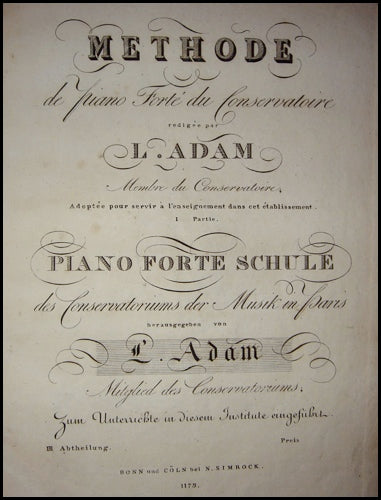 METHODE
de Piano Forté du Conservatoire
redigée par
L. ADAM
Membre du Conservatoire,
Adoptée pour servir à l'enseignement dans cet établissement.
I Partie.
PIANO FORTE SCHULE
des Conservatoriums der Musik in Paris
herausgegeben von
L. Adam
Mitglied des Conservatoriums.
Zum Unterrichte in diesem Institute eingeführt.
III Abtheilung. Preis
BONN und CÖLN bei N. SIMROCK.
1175.